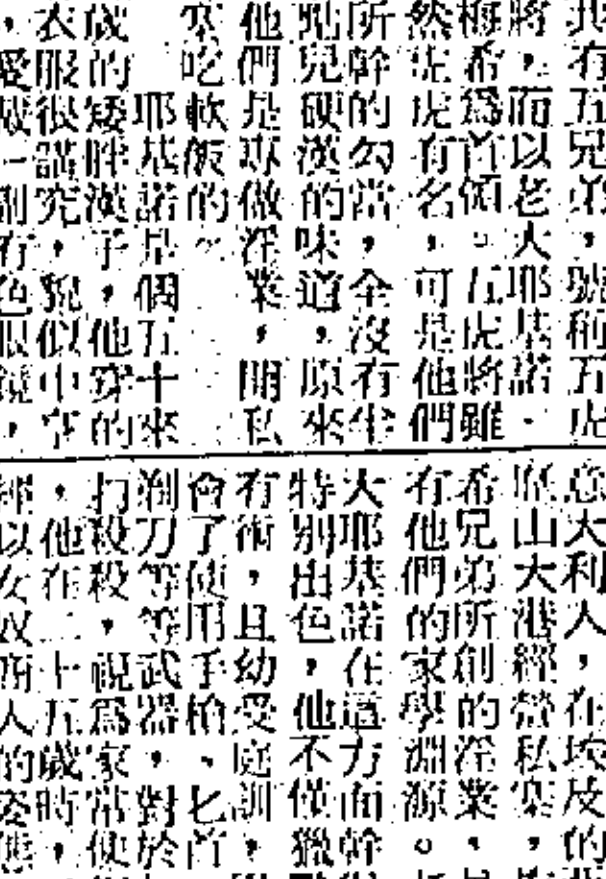 共有五兄弟，號稱五虎
將，而以老大耶基諾·
梅希爲首領。五虎將雖
然先虎有名，可是他們
所幹的勾當，全沒有半
點兒硬漢的味道，原來
他們是專做淫業，開私
寮吃軟飯的。
耶基諾是個五十來
歲的矮胖漢子，他穿的
衣服很講究，貌似中年
，愛戴一副有色眼鏡，
意大利人，在坎皮的
歷山大港經營私寮，
希兄弟所創的淫業，
有他們的家學淵源。
大耶基諾在這方面幹
特別出色，他不僅獵
有術，且幼受庭訓，
會了使用手槍、匕首
剃刀等等武器，對於
打殺殺，視爲家常便
，他在二十五歲時，
裡以女奴所人的姿態